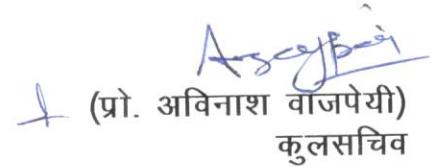 (प्रो. अविनाश वाजपेयी)
कुलसचिव